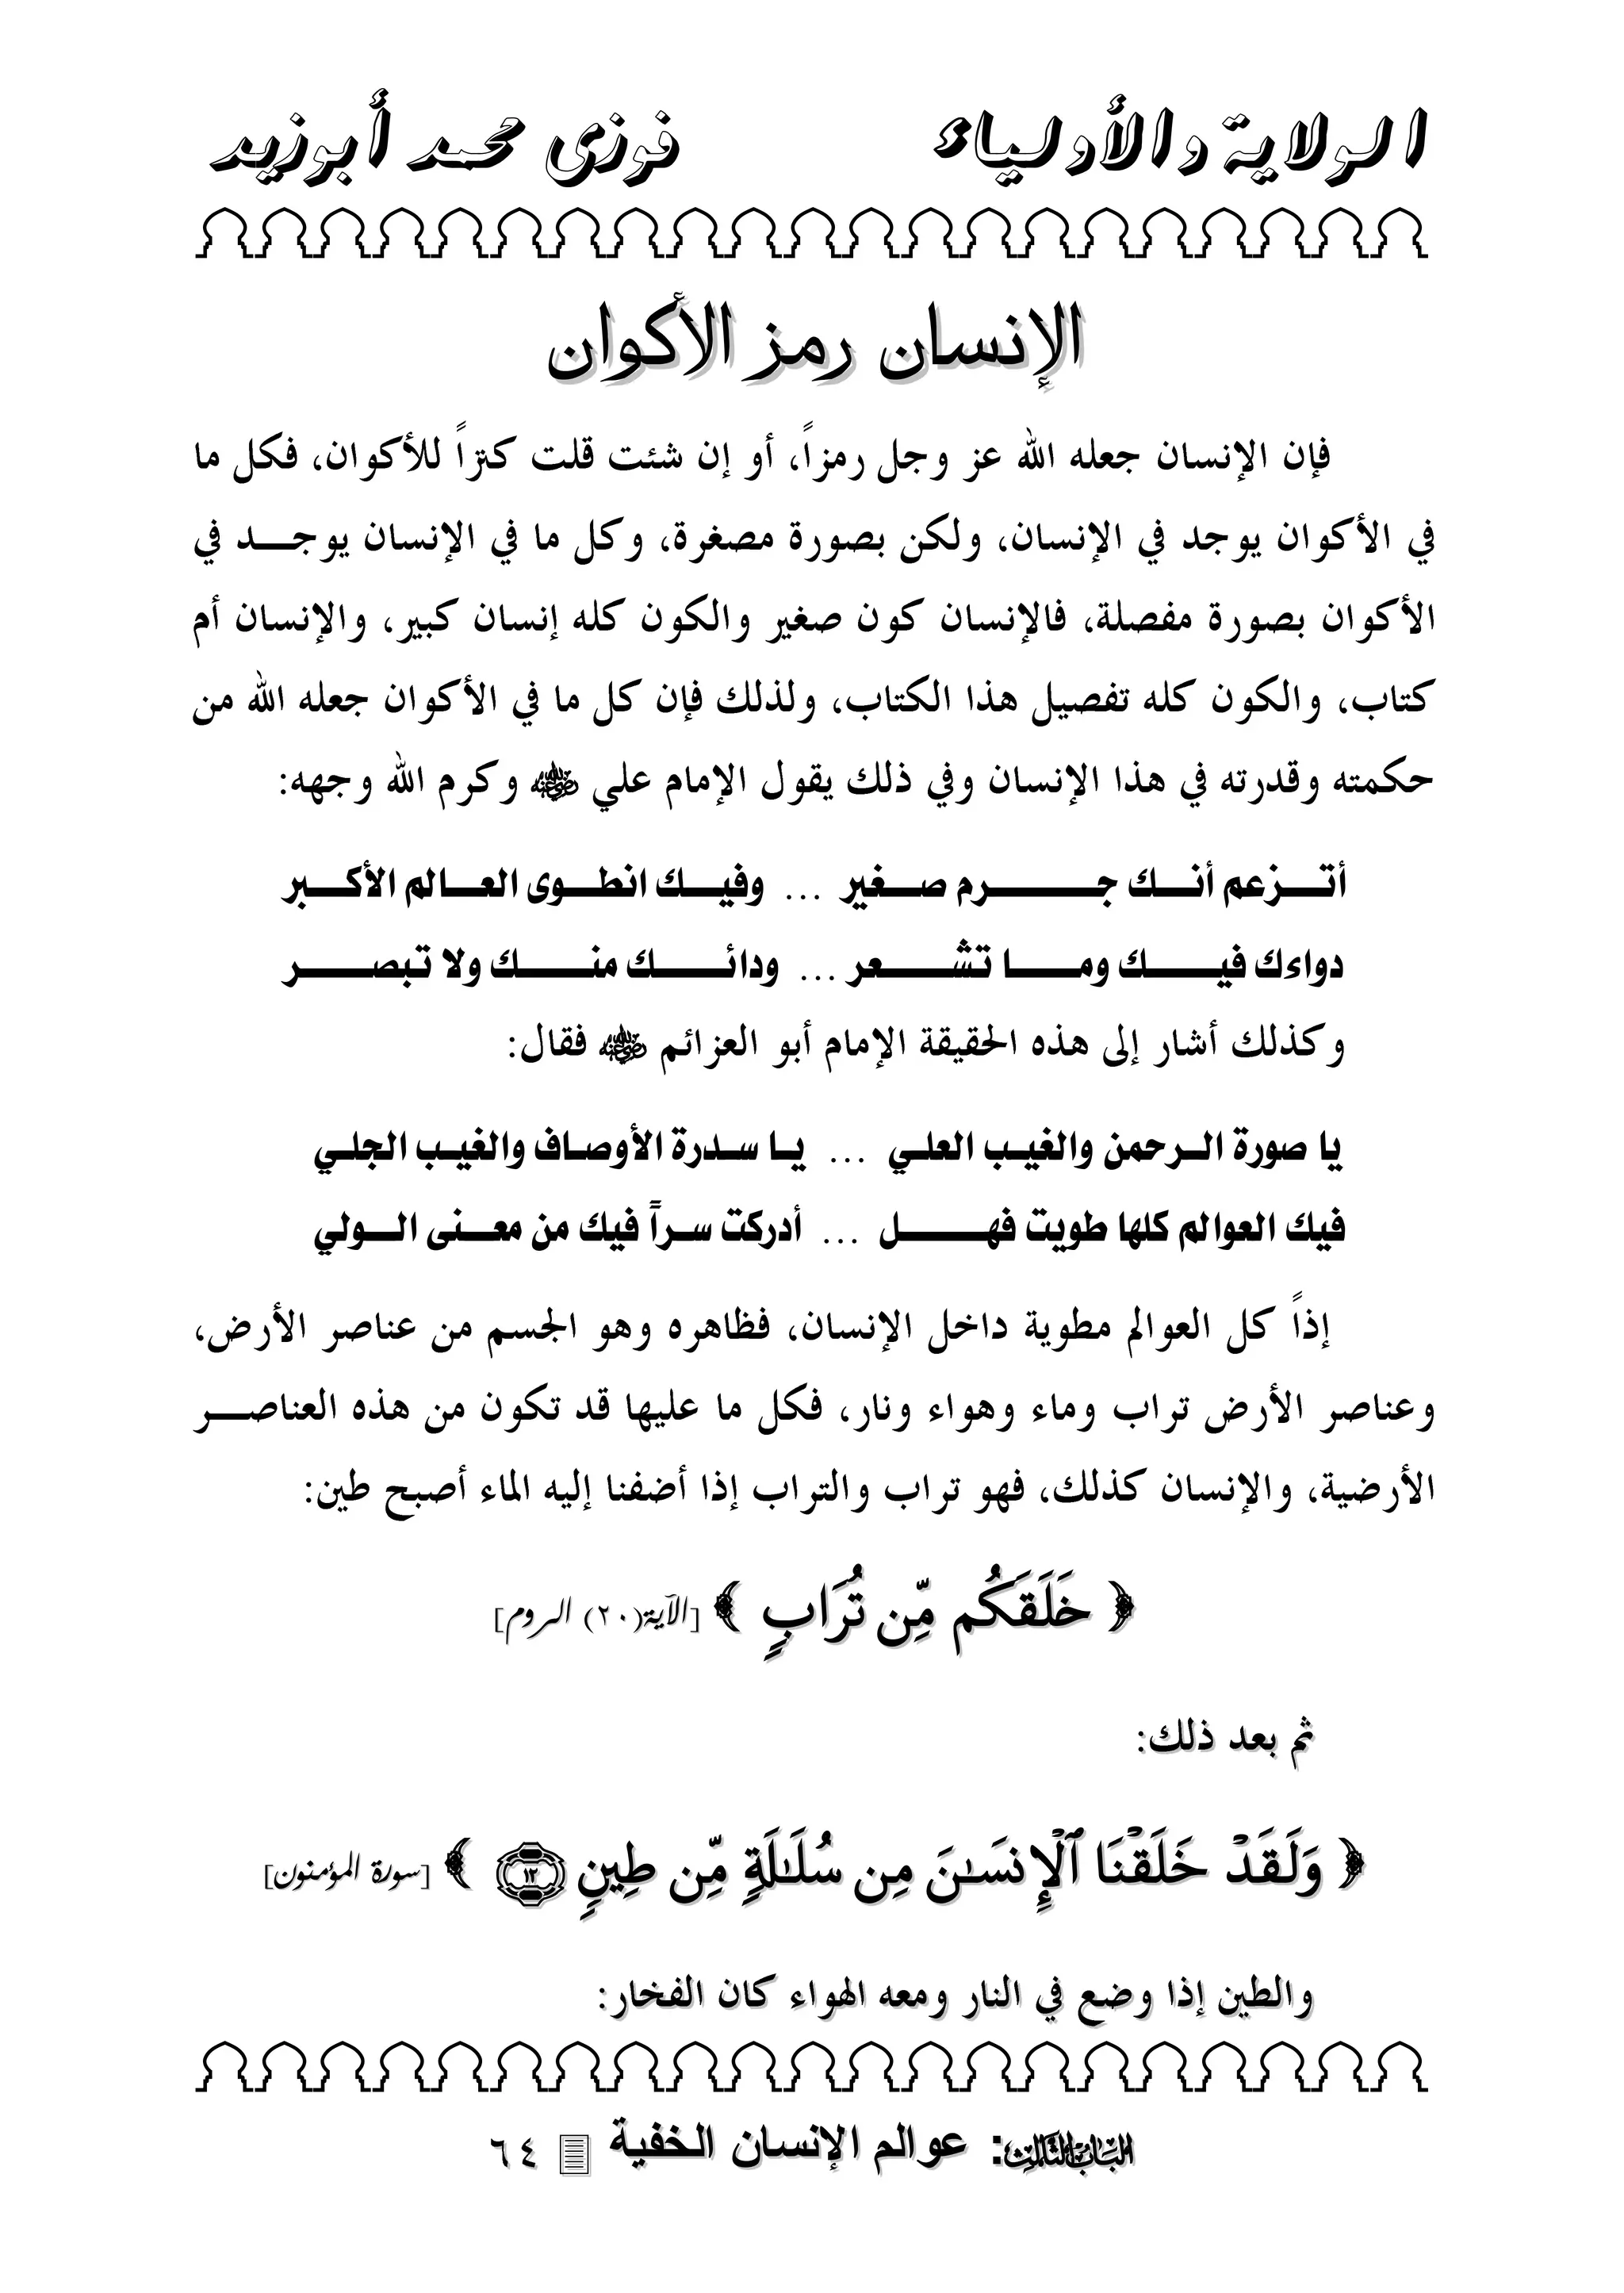 الولاية والأولياء فوزى محمد أبوزيد
الإنسان رمز الأكوان
فإن الإنسان جعله الله عز وجل رمزاً، أو إن شئت قلت كنزاً للأكوان، فكل ما
في الأكوان يوجد في الإنسان، ولكن بصورة مصغرة، وكل ما في الإنسان يوجد في
الأكوان بصورة مفصلة، فالإنسان كون صغير والكون كله إنسان كبير، والإنسان أم
كتاب، والكون كله تفصيل هذا الكتاب، ولذلك فإن كل ما في الأكوان جعله الله من
حكمته وقدرته في هذا الإنسان وفي ذلك يقول الإمام علي ﷺ وكرم الله وجهه:
أتزعم أنك جرم صغير ... وفيك انطوى العالم الأكبر
دواءك فيك وما تشعر ... ودائك منك ولا تبصر
وكذلك أشار إلى هذه الحقيقة الإمام أبو العزائم رضي الله عنه فقال:
يا صورة الرحمن والغيب العلي ... يا سدرة الأوصاف والغيب الجلي
فيك العوالم كلها طويت فهل ... أدركت سراً فيك من معنى الولي
إذاً كل العوالم مطوية داخل الإنسان، فظاهره وهو الجسم من عناصر الأرض،
وعناصر الأرض تراب وماء وهواء ونار، فكل ما عليها قد تكون من هذه العناصر
الأرضية، والإنسان كذلك، فهو تراب والتراب إذا أضفنا إليه الماء أصبح طين:
﴿ خَلَقَكُم مِّن تُرَابٍ ﴾ [الآية(٢٠) الروم]
ثم بعد ذلك:
﴿ وَلَقَدْ خَلَقْنَا ٱلْإِنسَـٰنَ مِن سُلَـٰلَةٍ مِّن طِينٍ ١٢ ﴾ [سورة المؤمنون]
والطين إذا وضع في النار ومعه الهواء كان الفخار:
الباب الثالث: عوالم الإنسان الخفية ٦٤